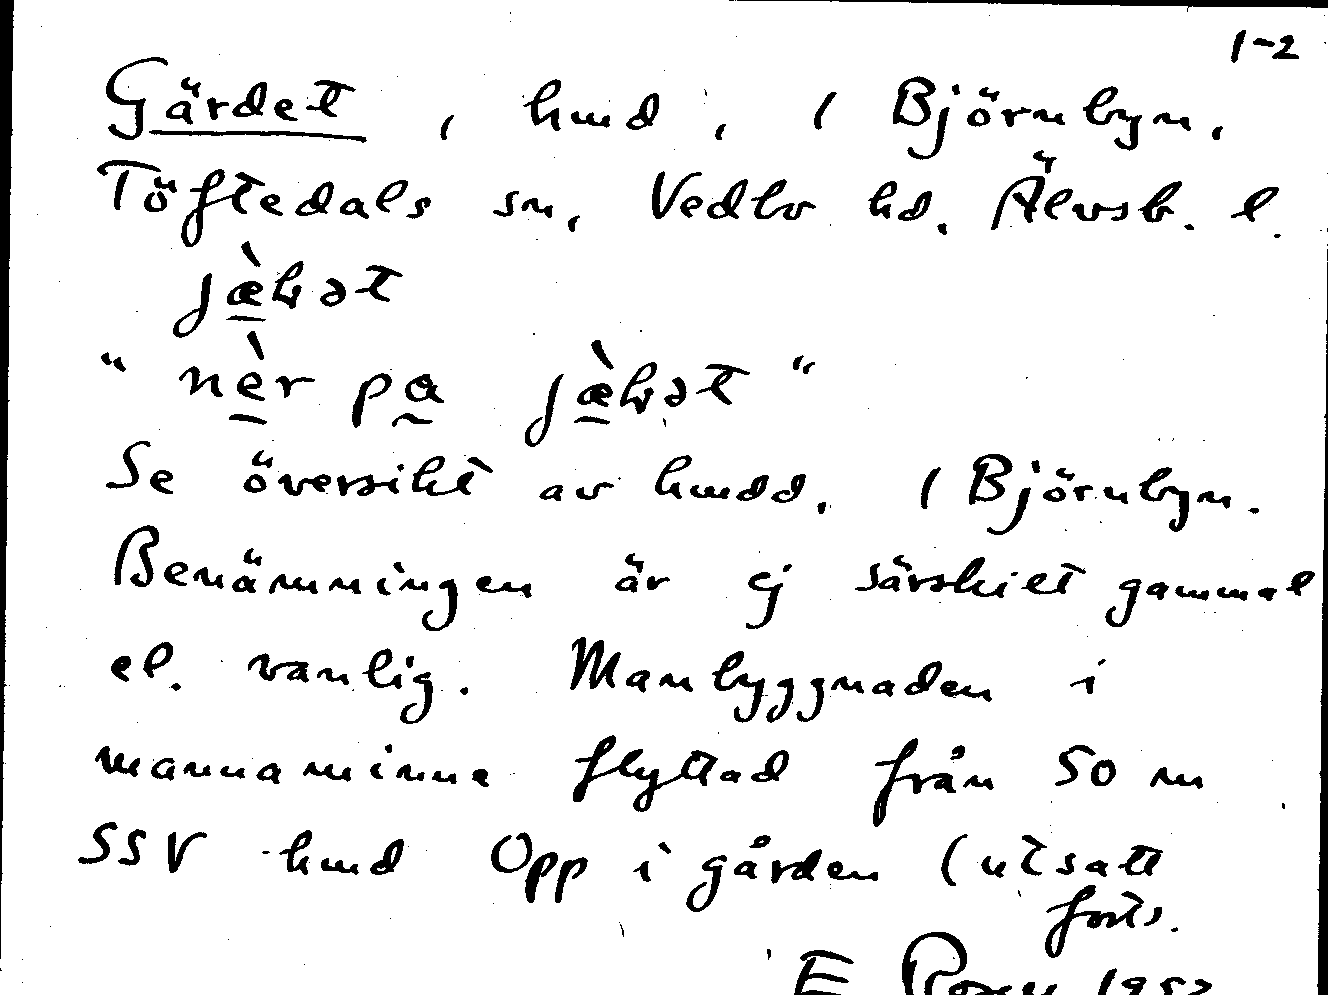 1-2
Gärdet, hmd, i Björnbyn,
Töftedals sn, Vedbo hd. Älvsb. l.
"nèr
Se översikt av hmdd, i Björnbyn.
Benämningen är ej särskilt gammal
el. vanlig. Manbyggnaden i
mannaminne flyttad från 50 m
SSV hmd Opp i gården (utsatt
forts.
E